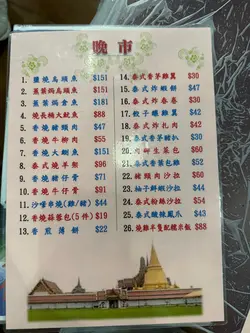 晚市
1. 鹽燒烏頭魚 $151
2. 蕉葉焗烏頭魚 $151
3. 蕉葉焗倉魚 $181
4. 燒長桶大魷魚 $88
5. 香燒豬頸肉 $47
6. 香燒牛柳肉 $55
7. 香燒大鯇魚 $151
8. 泰式燒羊架 $96
9. 香燒豬仔骨 $51
10. 香燒牛仔骨 $91
11. 沙嗲串燒(雞/豬) $44
12. 香燒蒜蓉包(5件) $19
13. 香煎薄餅 $22
14. 泰式香茅雞翼 $30
15. 泰式炸蝦餅 $47
16. 泰式炸春卷 $30
17. 骰子爆雞翼 $40
18. 泰式炸扎肉 $42
19. 泰式香茅豬扒 $30
20. 肉碎生菜包 $50
21. 泰式香葉包雞 $52
22. 豬頸肉沙拉 $50
23. 柚子鮮蝦沙拉 $54
24. 泰式粉絲沙拉 $54
25. 泰式酸辣鳳爪 $43
26. 燒雞半隻配糯米飯 $88